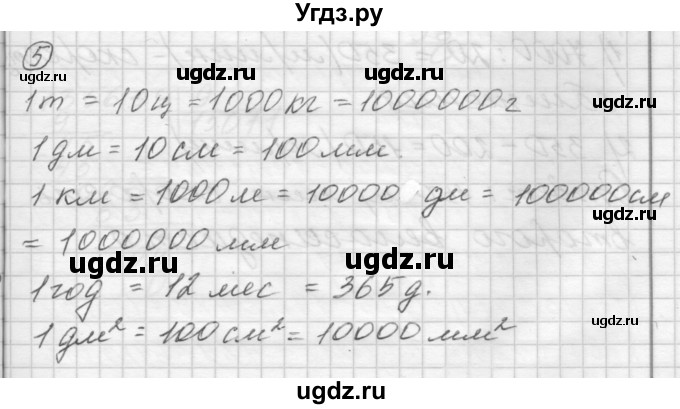 Угдз.ру
5
ugdz.ru ugdz.ru ugdz.ru
1т = 10ц = 1000кг = 1000000г
1 дм = 10 см = 100 мм.
ugdz.ru ugdz.ru
1 км = 1000 м = 10000 дм = 100000 см
ugdz.ru
= 1000000 мм
ugdz.ru ugdz.ru
1 год = 12 мес = 365 д.
ugdz.ru
1 дм² = 100 см² = 10000 мм²
ugdz.ru ugdz.ru
ugdz.ru